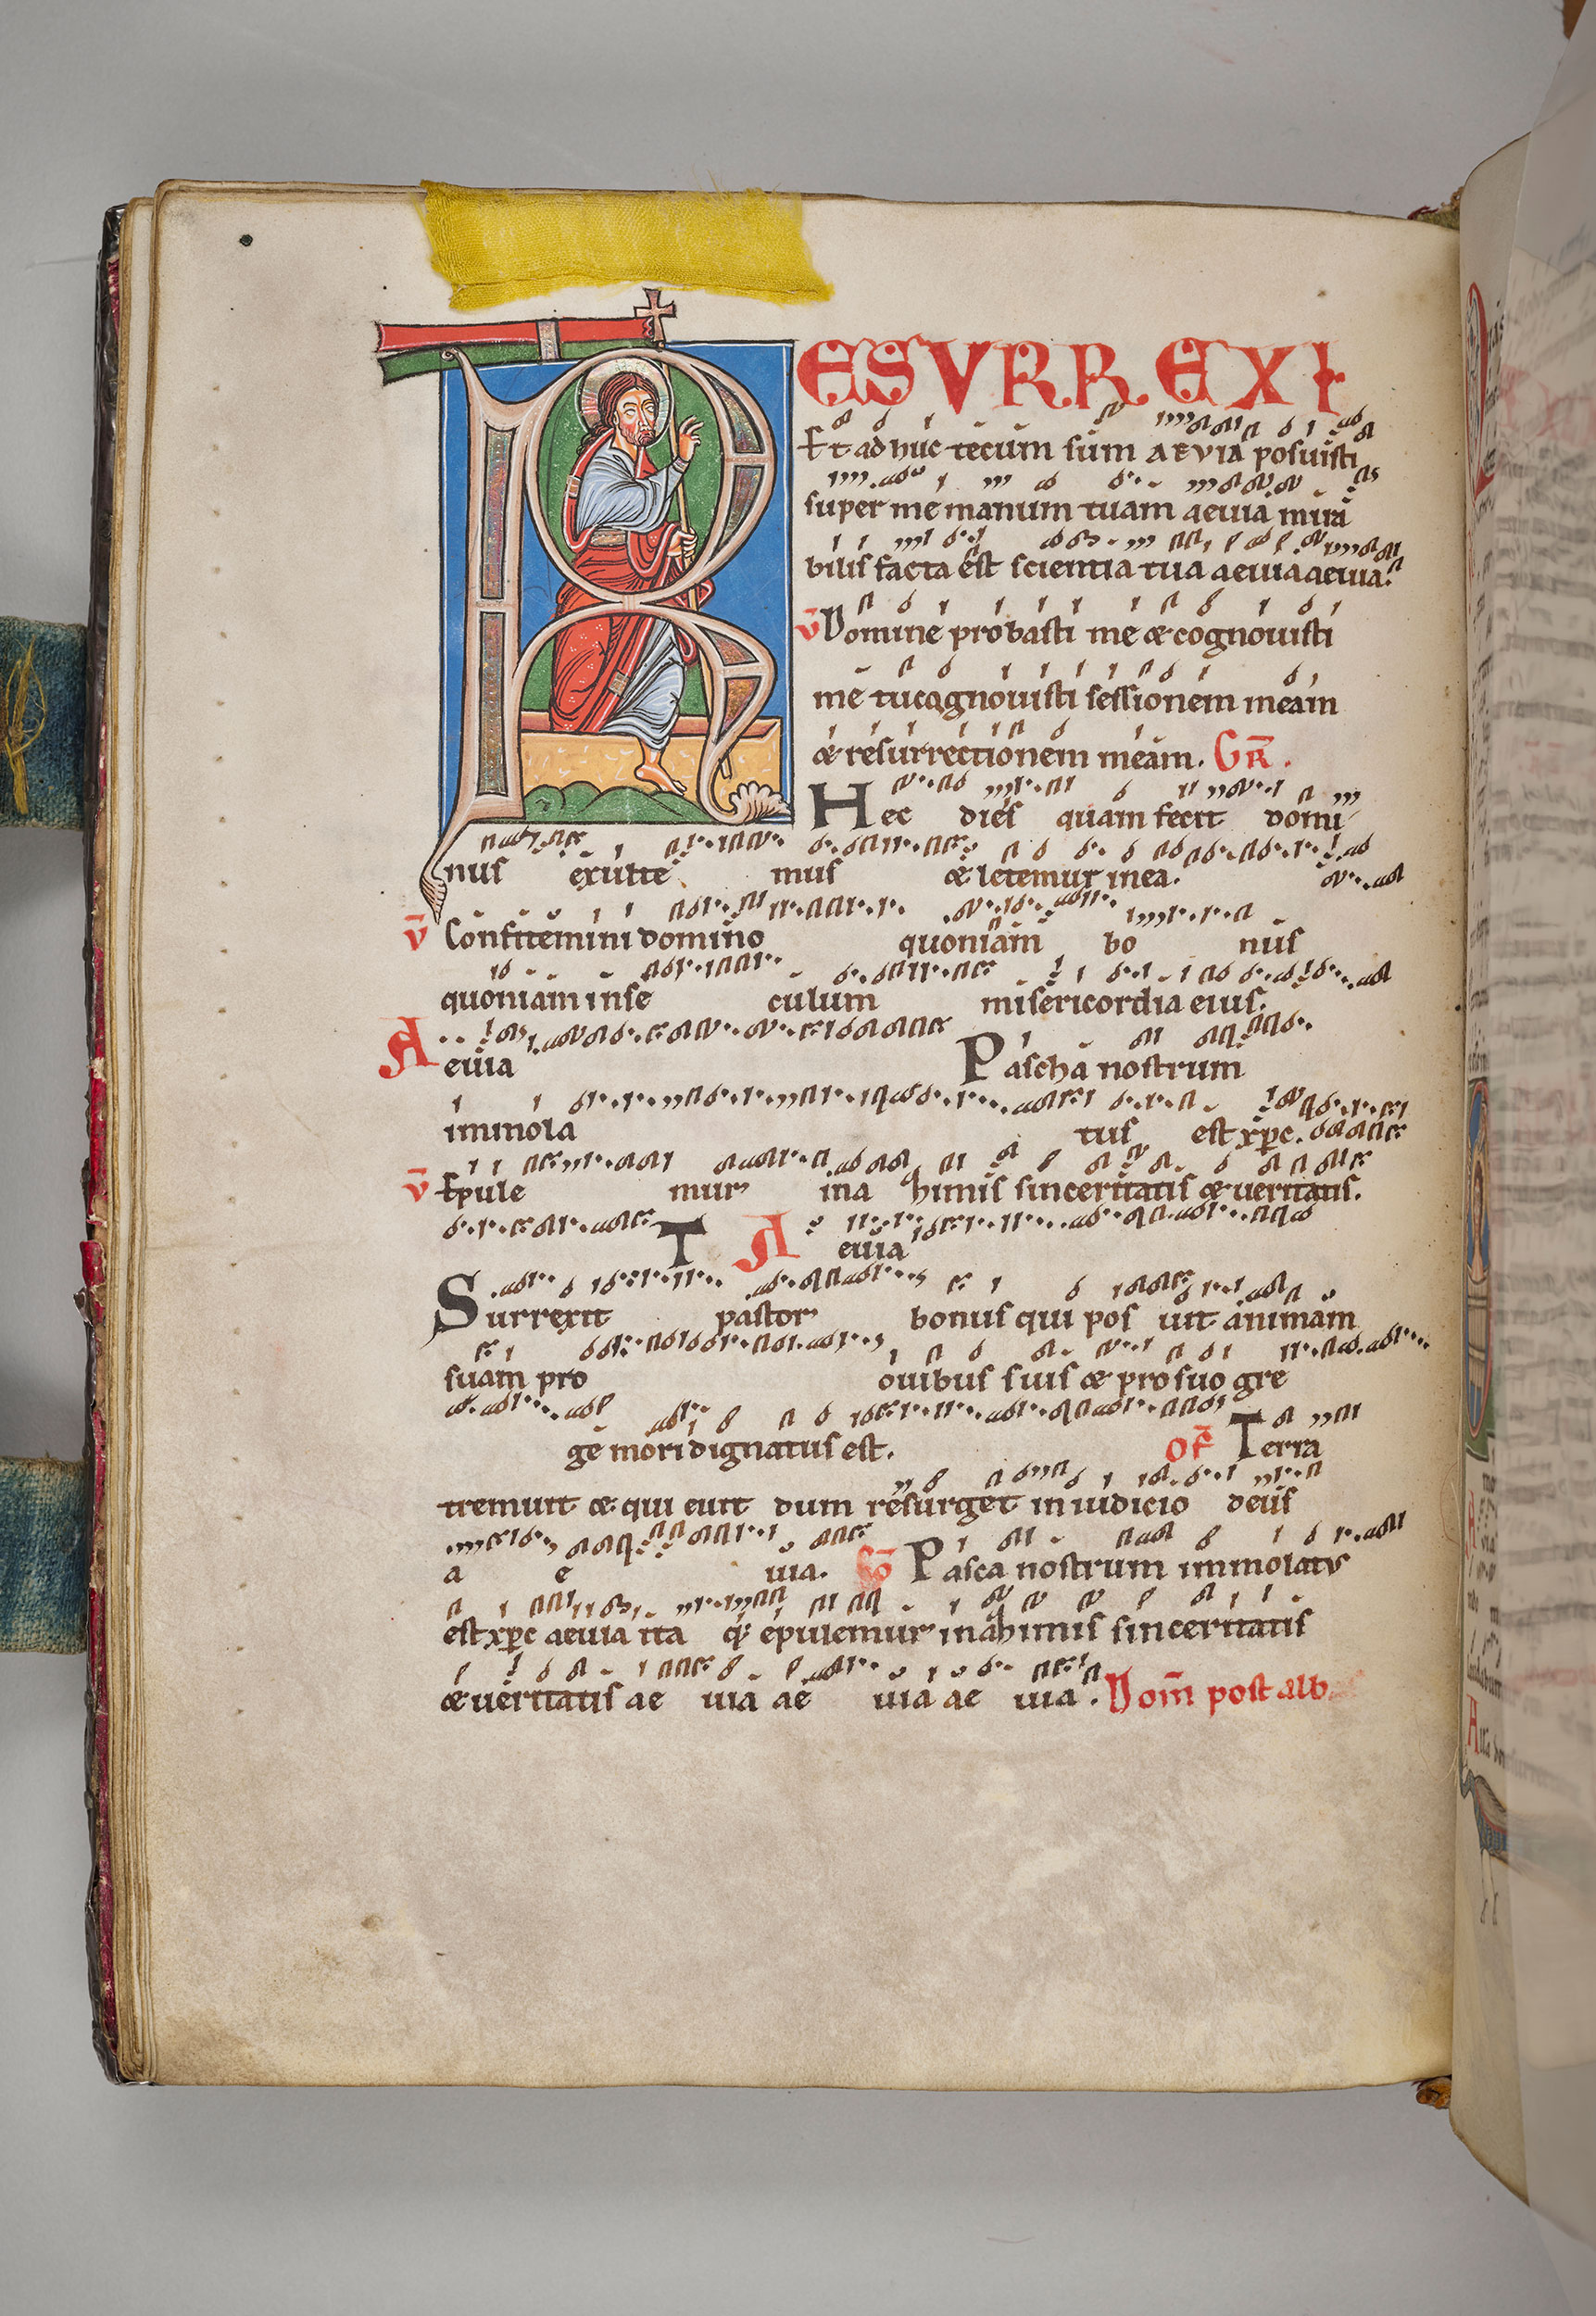 RESURREXI
Et adhuc tecum sum AEVIA posuisti
super me manum tuam aeuia mira
bilis facta est scientia tua aeuia aeuia.
V̄ Domine probasti me & cognouisti
me tu cognouisti sessionem meam
& resurrectionem meam. GR̄.
Hec dies quam fecit domi
nus exulte mus & letemur in ea.
V̄ Confitemini domino quoniam bo nus
quoniam in se culum misericordia eius.
Aeuia Pascha nostrum
immola tus est xp̄c.
V̄ Epule mur in a himis sinceritatis & ueritatis.
T Aeuia
Surrexit pastor bonus qui pos uit animam
suam pro ouibus suis & pro suo gre
ge mori dignatus est. OF̄ Terra
tremuit & qui euit dum resurget in iudicio deus
a e uia. CO̅ Pasca nostrum immolatus
est xp̄c aeuia ita q; epulemur in ahimis sinceritatis
& ueritatis ae uia ae uia ae uia. Dom̄ post alb